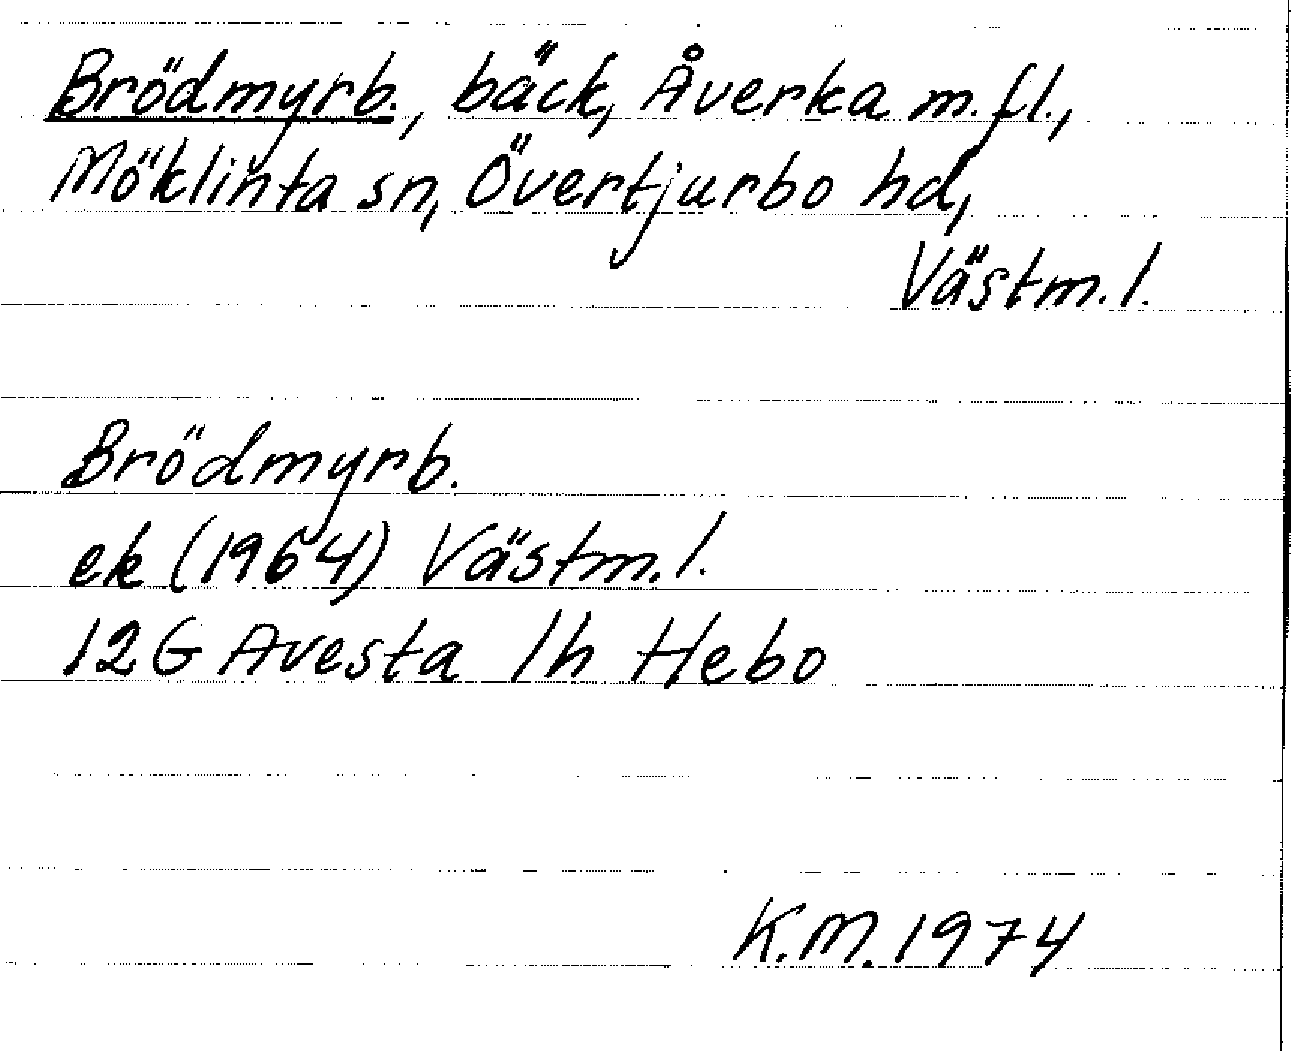 Brödmyrb., bäck, Åverka m.fl.,
Möklinta sn, Övertjurbo hd,
Västm. l.
Brödmyrb.
ek (1964) Västm. l.
12G Avesta 1h Hebo
K.M. 1974